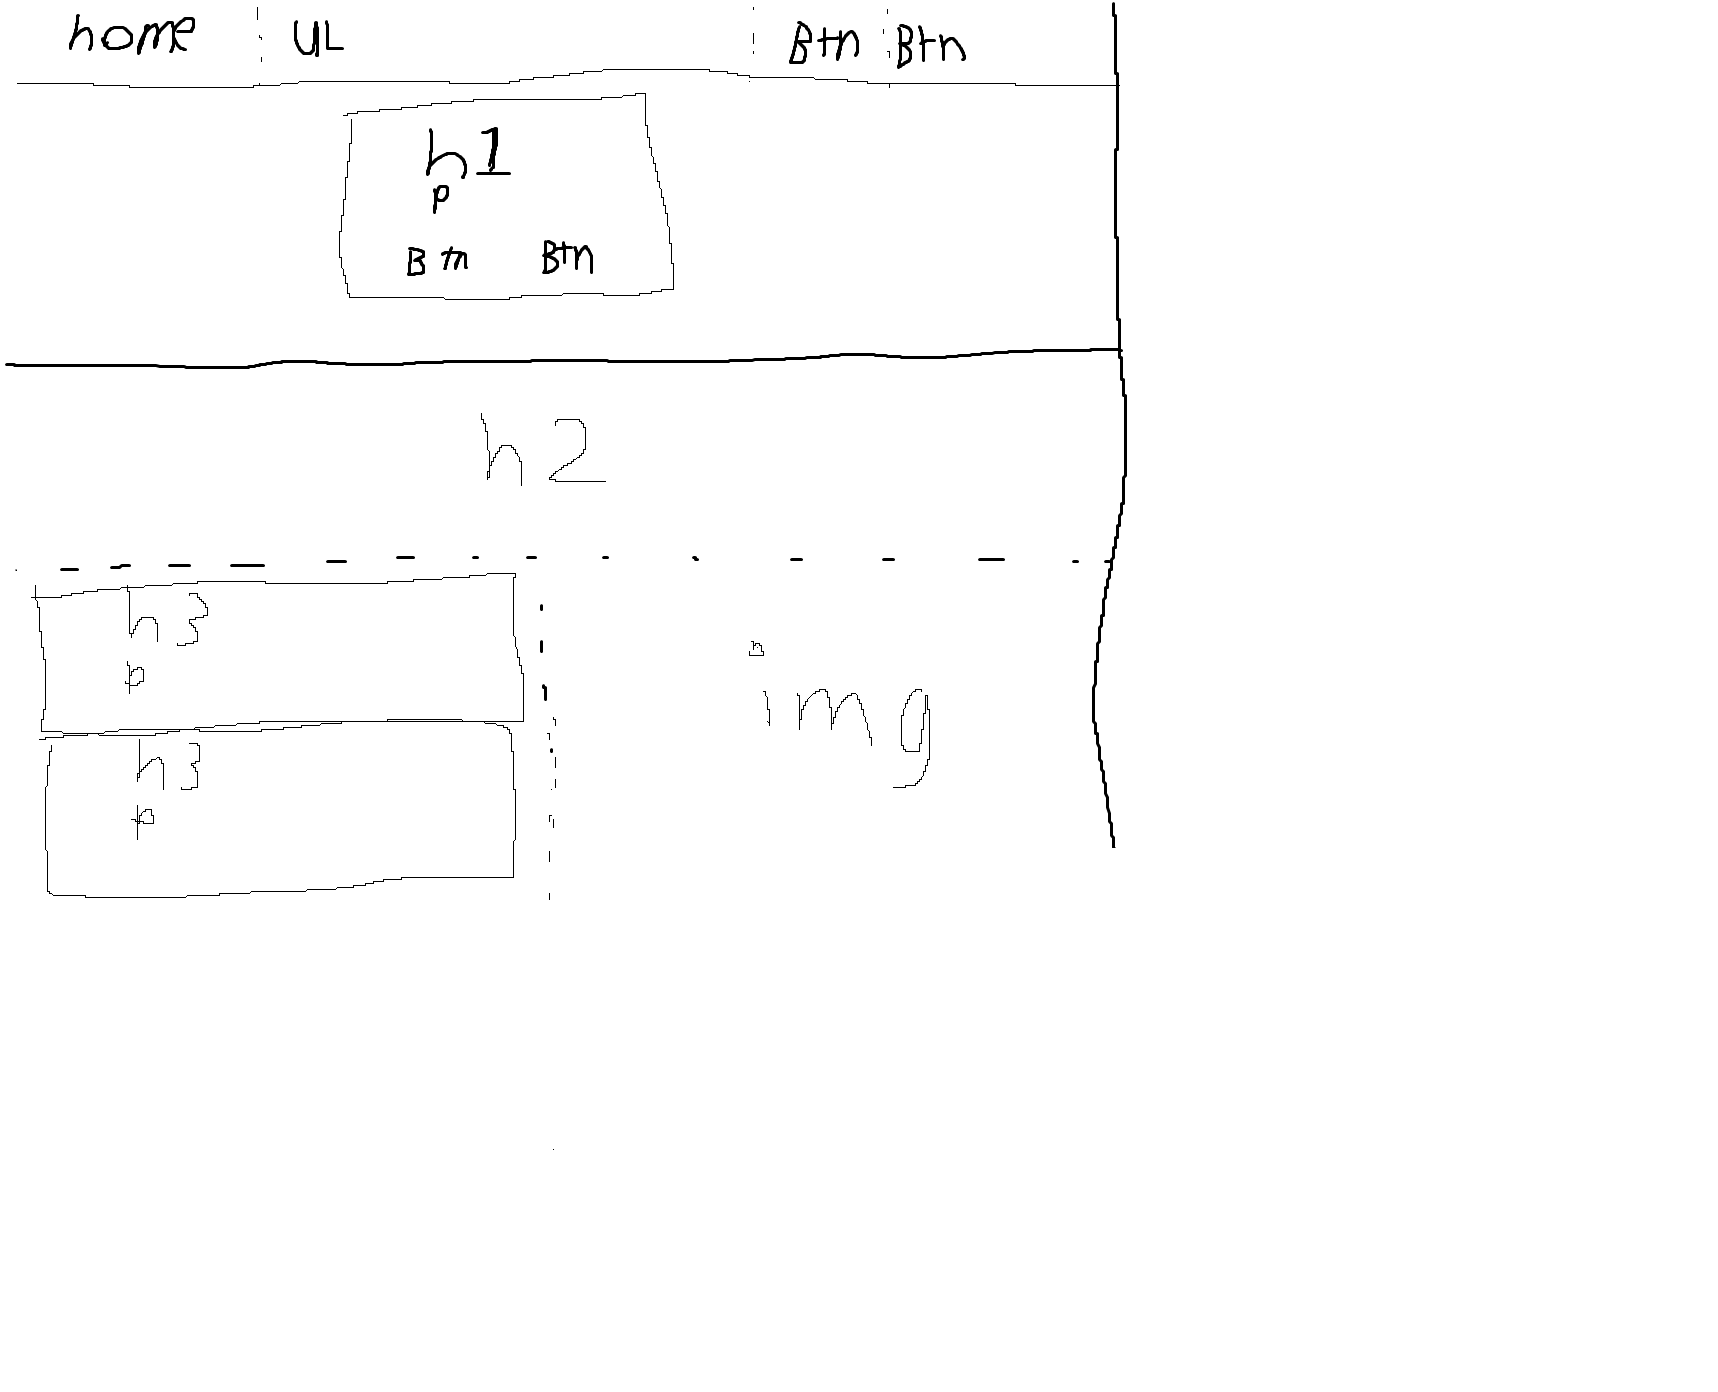 home UL Btn Btn
h1
p
Btn Btn
h2
h3
p
img
h3
p